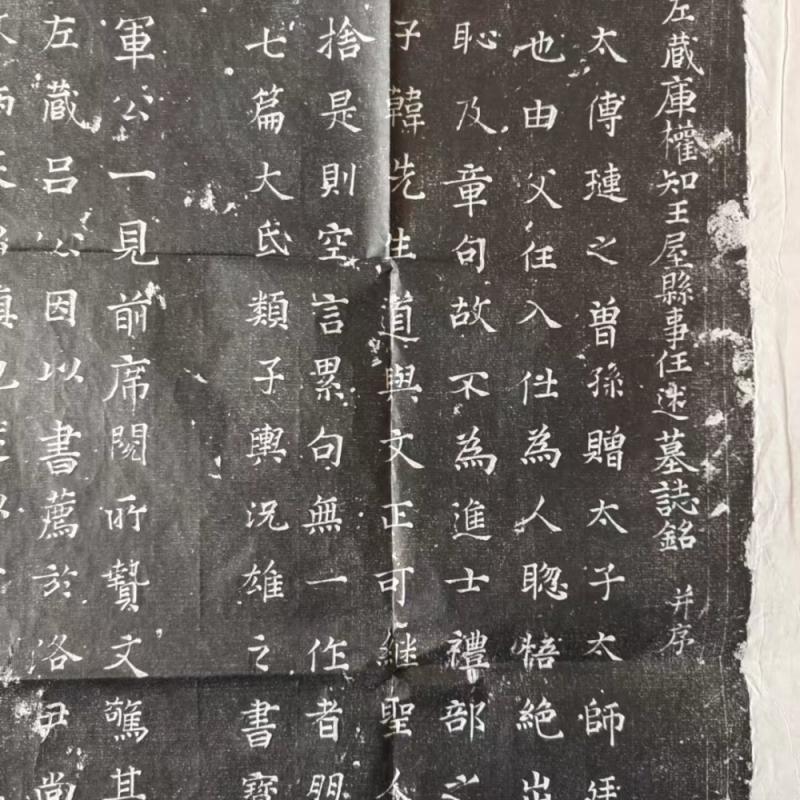 左藏庫權知王屋縣事任逑墓誌銘 并序
太傅璉之曾孫贈太子太師
也由父任入仕為人聰悟絕出
恥及章句故不為進士禮部之
子韓先生道與文正可繼聖人
捨是則空言累句無一作者朋
七篇大氐類子輿況雄之書寶
軍公一見前席閱所贄文驚其
左藏呂公因以書薦於洛尹尚